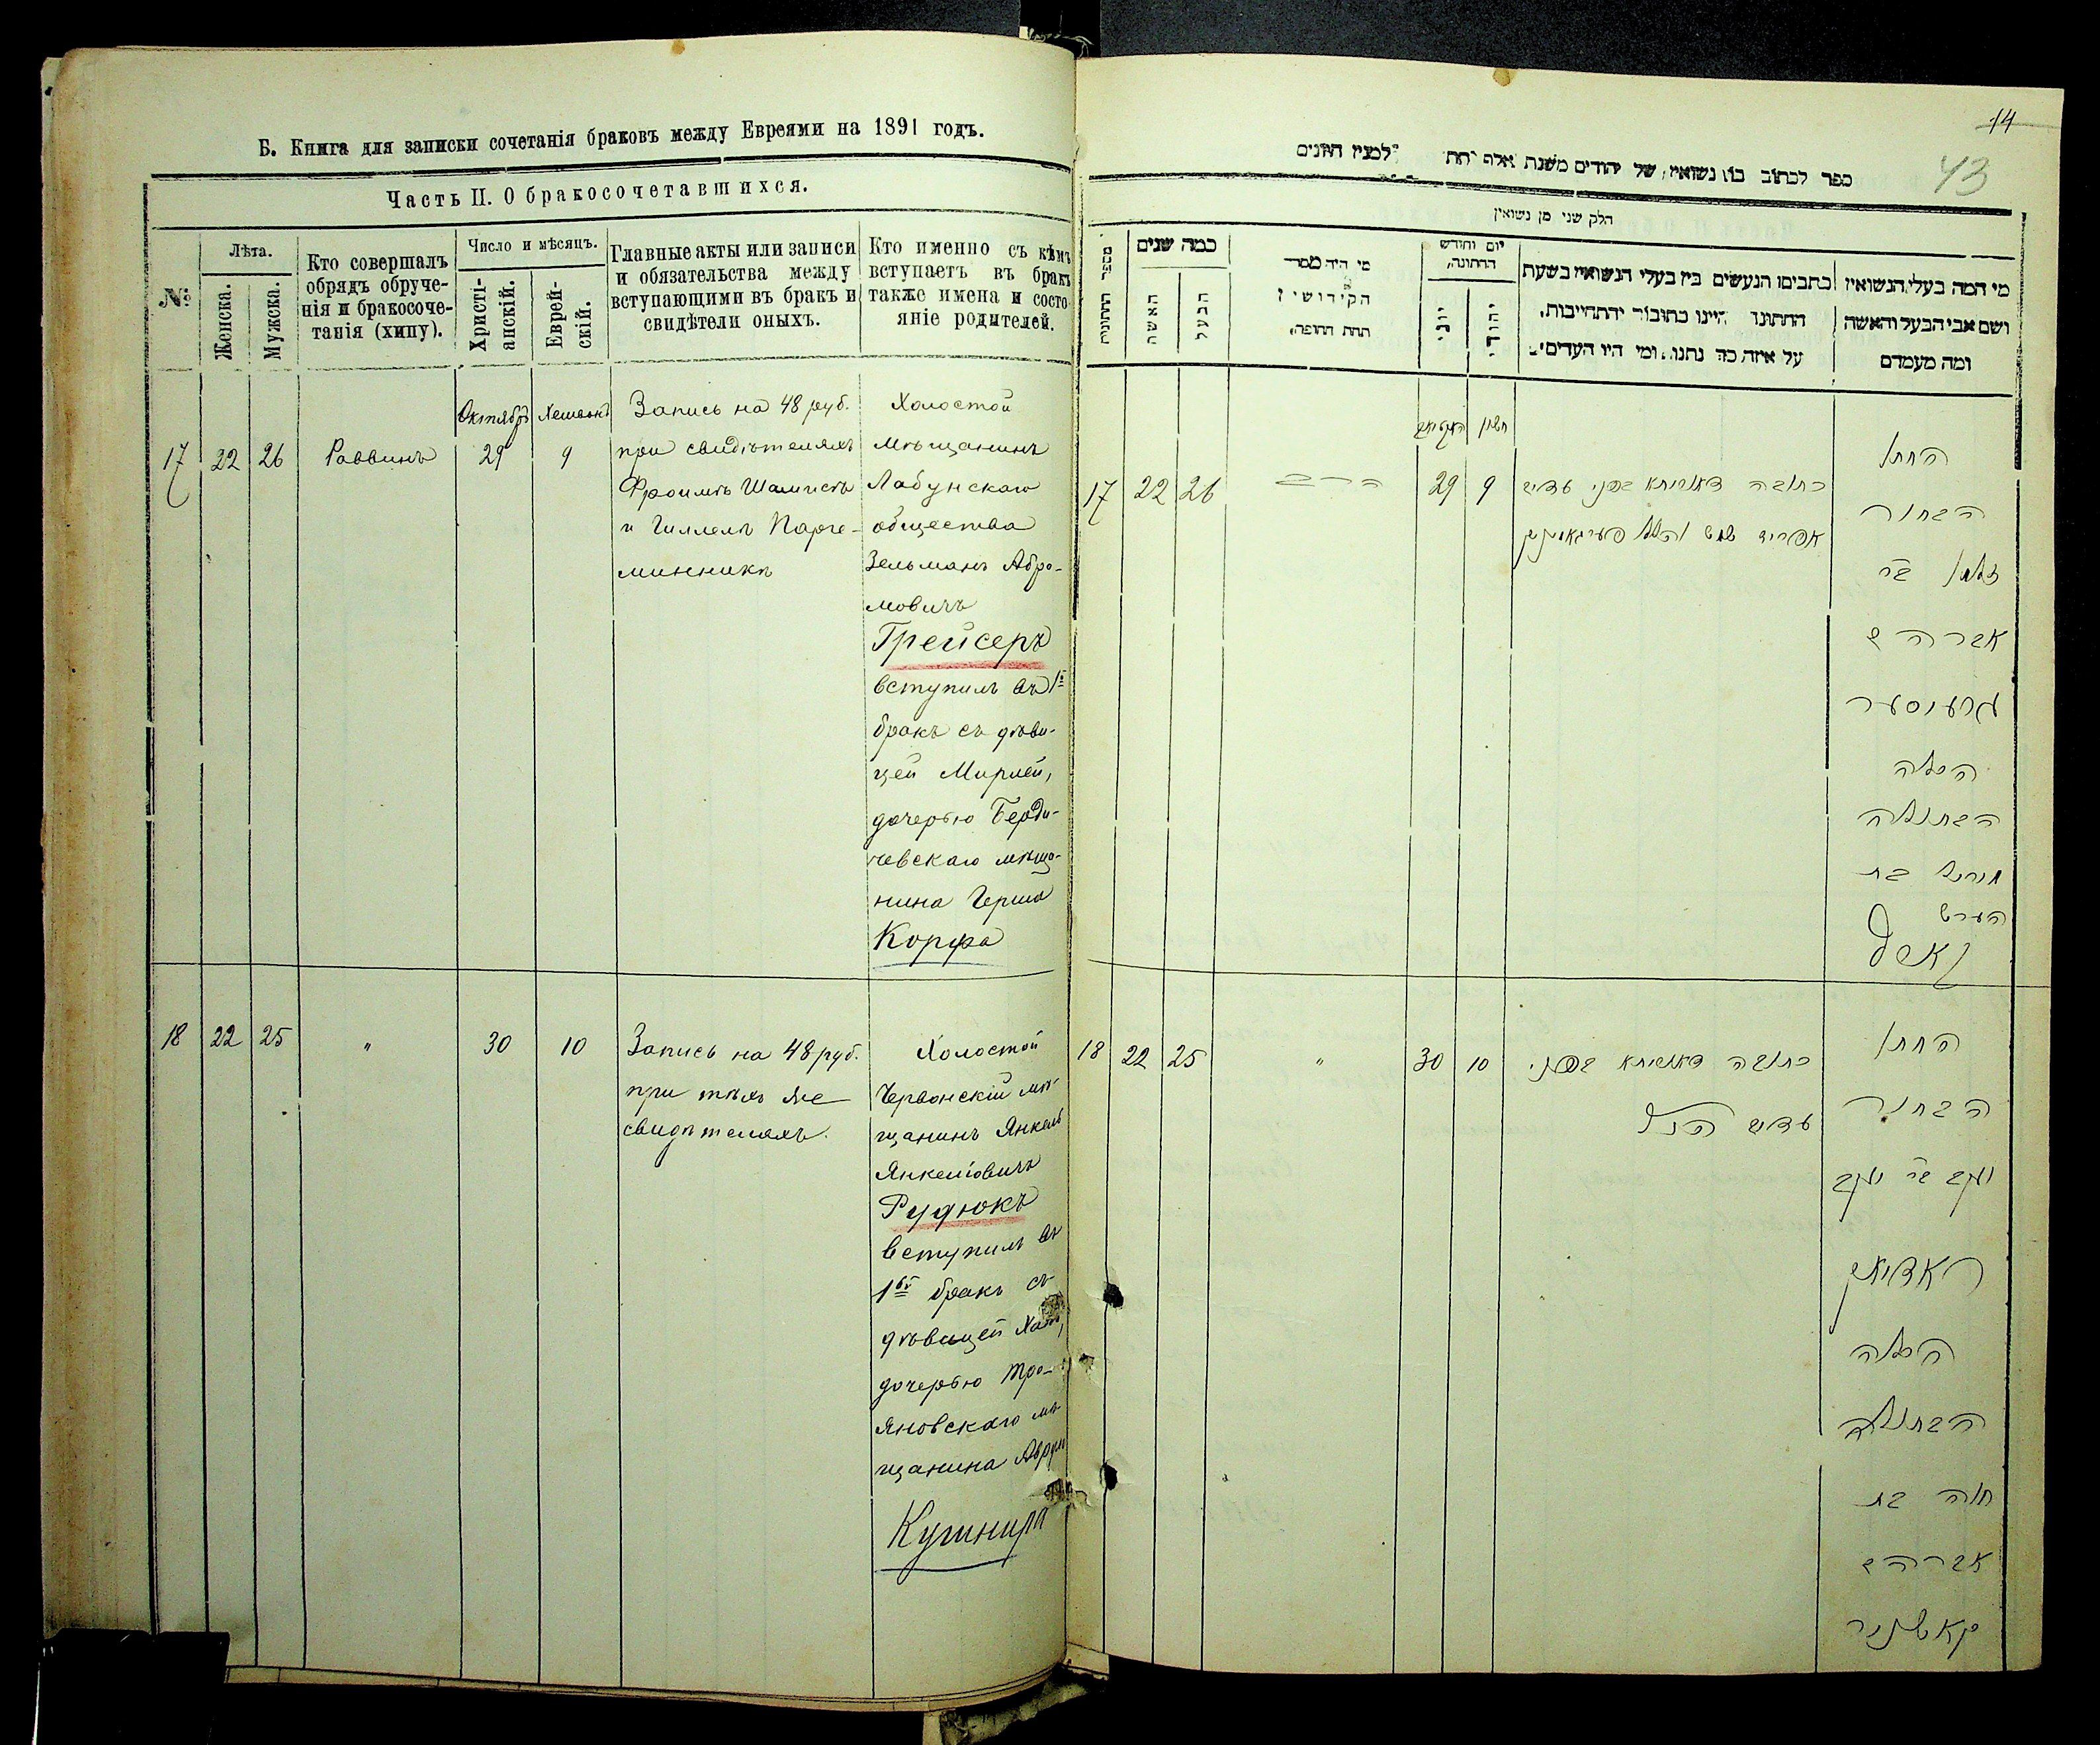 Б. Книга для записки сочетанія браковъ между Евреями на 1891 годъ.
Часть II. О бракосочетавшихся.
№
Лѣта.
Женска.
Мужска.
Кто совершалъ
обрядъ обруче-
нія и бракосоче-
танія (хипу).
Число и мѣсяцъ.
Христі-
анскій.
Еврей-
скій.
Главные акты или записи
и обязательства между
вступающими въ бракъ и
свидѣтели оныхъ.
Кто именно съ кѣмъ
вступаетъ въ бракъ
также имена и состо
яніе родителей.
Октябрь Хешвонъ
17 22 26 Раввинъ 29 9
Запись на 48 руб.
при свидѣтеляхъ
Фроимъ Шамисъ
и Гиллелъ Парче-
минникъ
Холостой
мѣщанинъ
Лабунскаго
общества
Зельманъ Абра-
мовичъ
Грейсеръ
вступилъ въ 1й
бракъ съ дѣви-
цей Мирлей,
дочерью Берди-
чевскаго мѣща-
нина Герша
Корфа
18 22 25 " 30 10
Запись на 48 руб.
при тѣхъ же
свидѣтеляхъ.
Холостой
Червонскій мѣ-
щанинъ Янкель
Янкелiовичъ
Рудюкъ
вступилъ въ
1ый бракъ съ
дѣвицей
дочерью Тро-
яновскаго мѣ
щанина Аврум
Кушнира
14
43
ספר לכתוב בו נשואין של יהודים משנת אלף תת למנין הזנים
חלק שני מן נשואין
מספר החתונות
כמה שנים
האשה
הבעל
מי היה מסדר
הקידושין
תחת החופה,
יום וחודש
החתונה,
יוני
יהודי
כתבים הנעשים בין בעלי הנשואין בשעת
החתונה היינו כתובה והתחייבות,
על איזה כה נתנו, ומי היו העדים.
מי המה בעלי הנשואין
ושם אבי הבעל והאשה
ומה מעמדם
אקטיאבר חשון
17 22 26 הרב 29 9
כתובה דאוריתא בפני עדים
אפרים שמש והלל פערגאמיניק
החתן
הבחור
זלמן בר
אברהם
גרעוסער
הכלה
הבתולה
מירל בת
הערש
קארף
18 22 25 " 30 10
כתובה דאוריתא בפני
עדים הנ"ל
החתן
הבחור
יעקב בר יעקב
ראדיאק
הכלה
הבתולה
חוה בת
אברהם
קאשניר